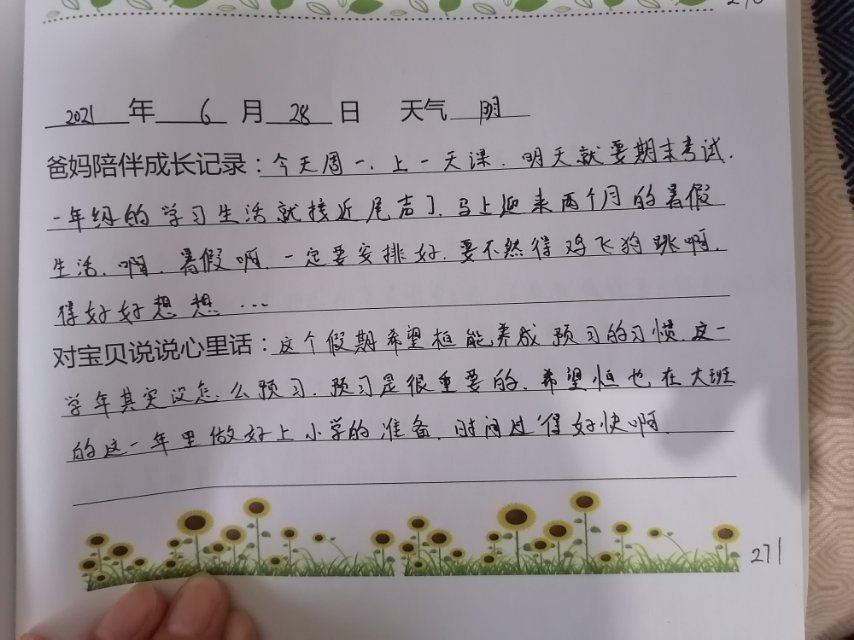 2021 年 6 月 28 日 天气 阴
爸妈陪伴成长记录:今天周一.上一天课.明天就要期末考试.
一年级的学习生活就接近尾声了.马上迎来两个月的暑假
生活.啊.暑假啊.一定要安排好.要不然得鸡飞狗跳啊.
得好好想想...
对宝贝说说心里话:这个假期希望桓能养成预习的习惯.这一
学年其实没怎么预习.预习是很重要的.希望恒也在大班
的这一年里做好上小学的准备.时间过得好快啊.
271